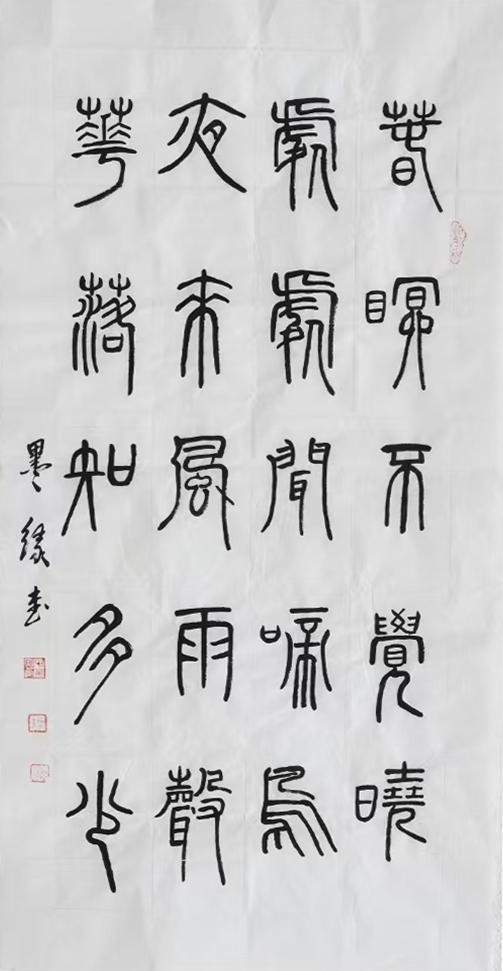 春瞑不覺曉
處處聞啼鳥
夜來風雨聲
華落知多少
墨緣書